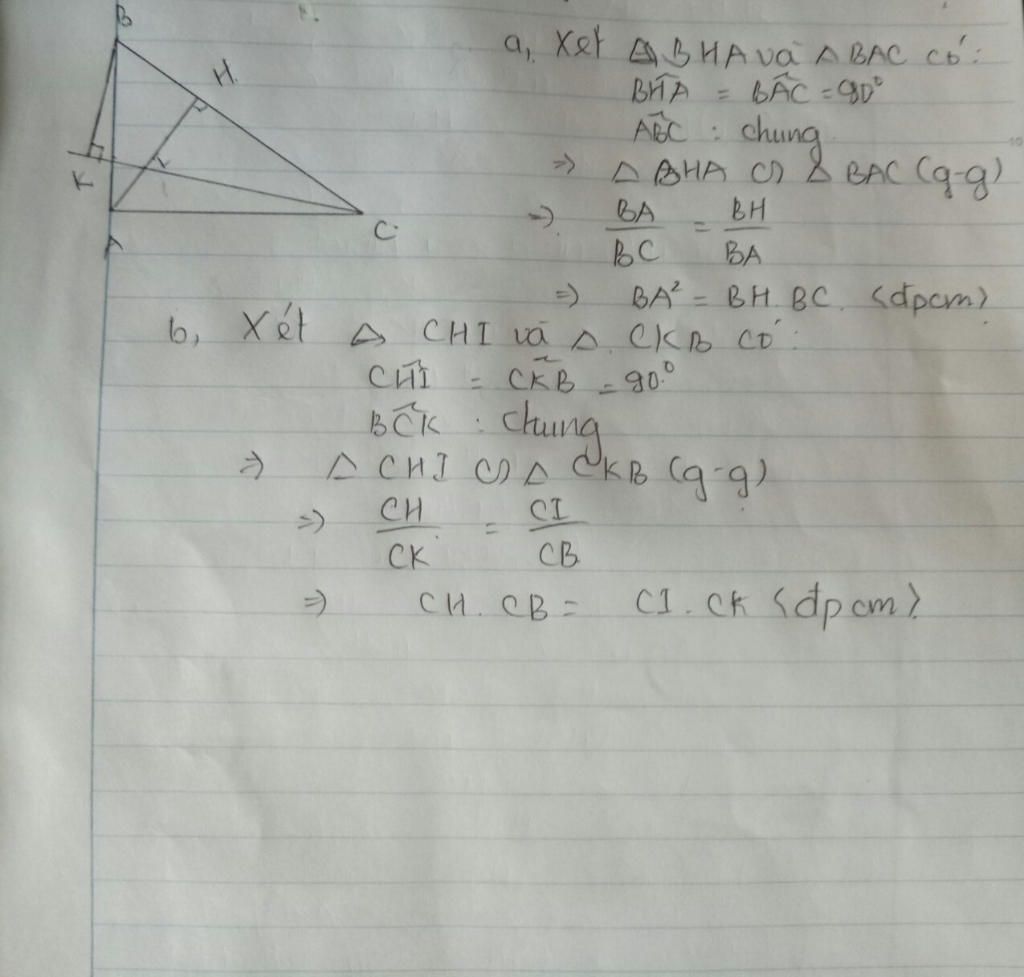 B
H.
K
I
C.
A
a, Xét △BHA và △BAC có:
BĤA = BÂC = 90°
AB̂C : chung
=> △BHA ∽ △BAC (g-g)
=> BA/BC = BH/BA
=> BA² = BH.BC. (đpcm)
b, Xét △ CHI và △ CKB có:
CĤI = CK̂B = 90°
BĈK : chung
=> △ CHI ∽ △ CKB (g-g)
=> CH/CK = CI/CB
=> CH.CB = CI.CK (đpcm)